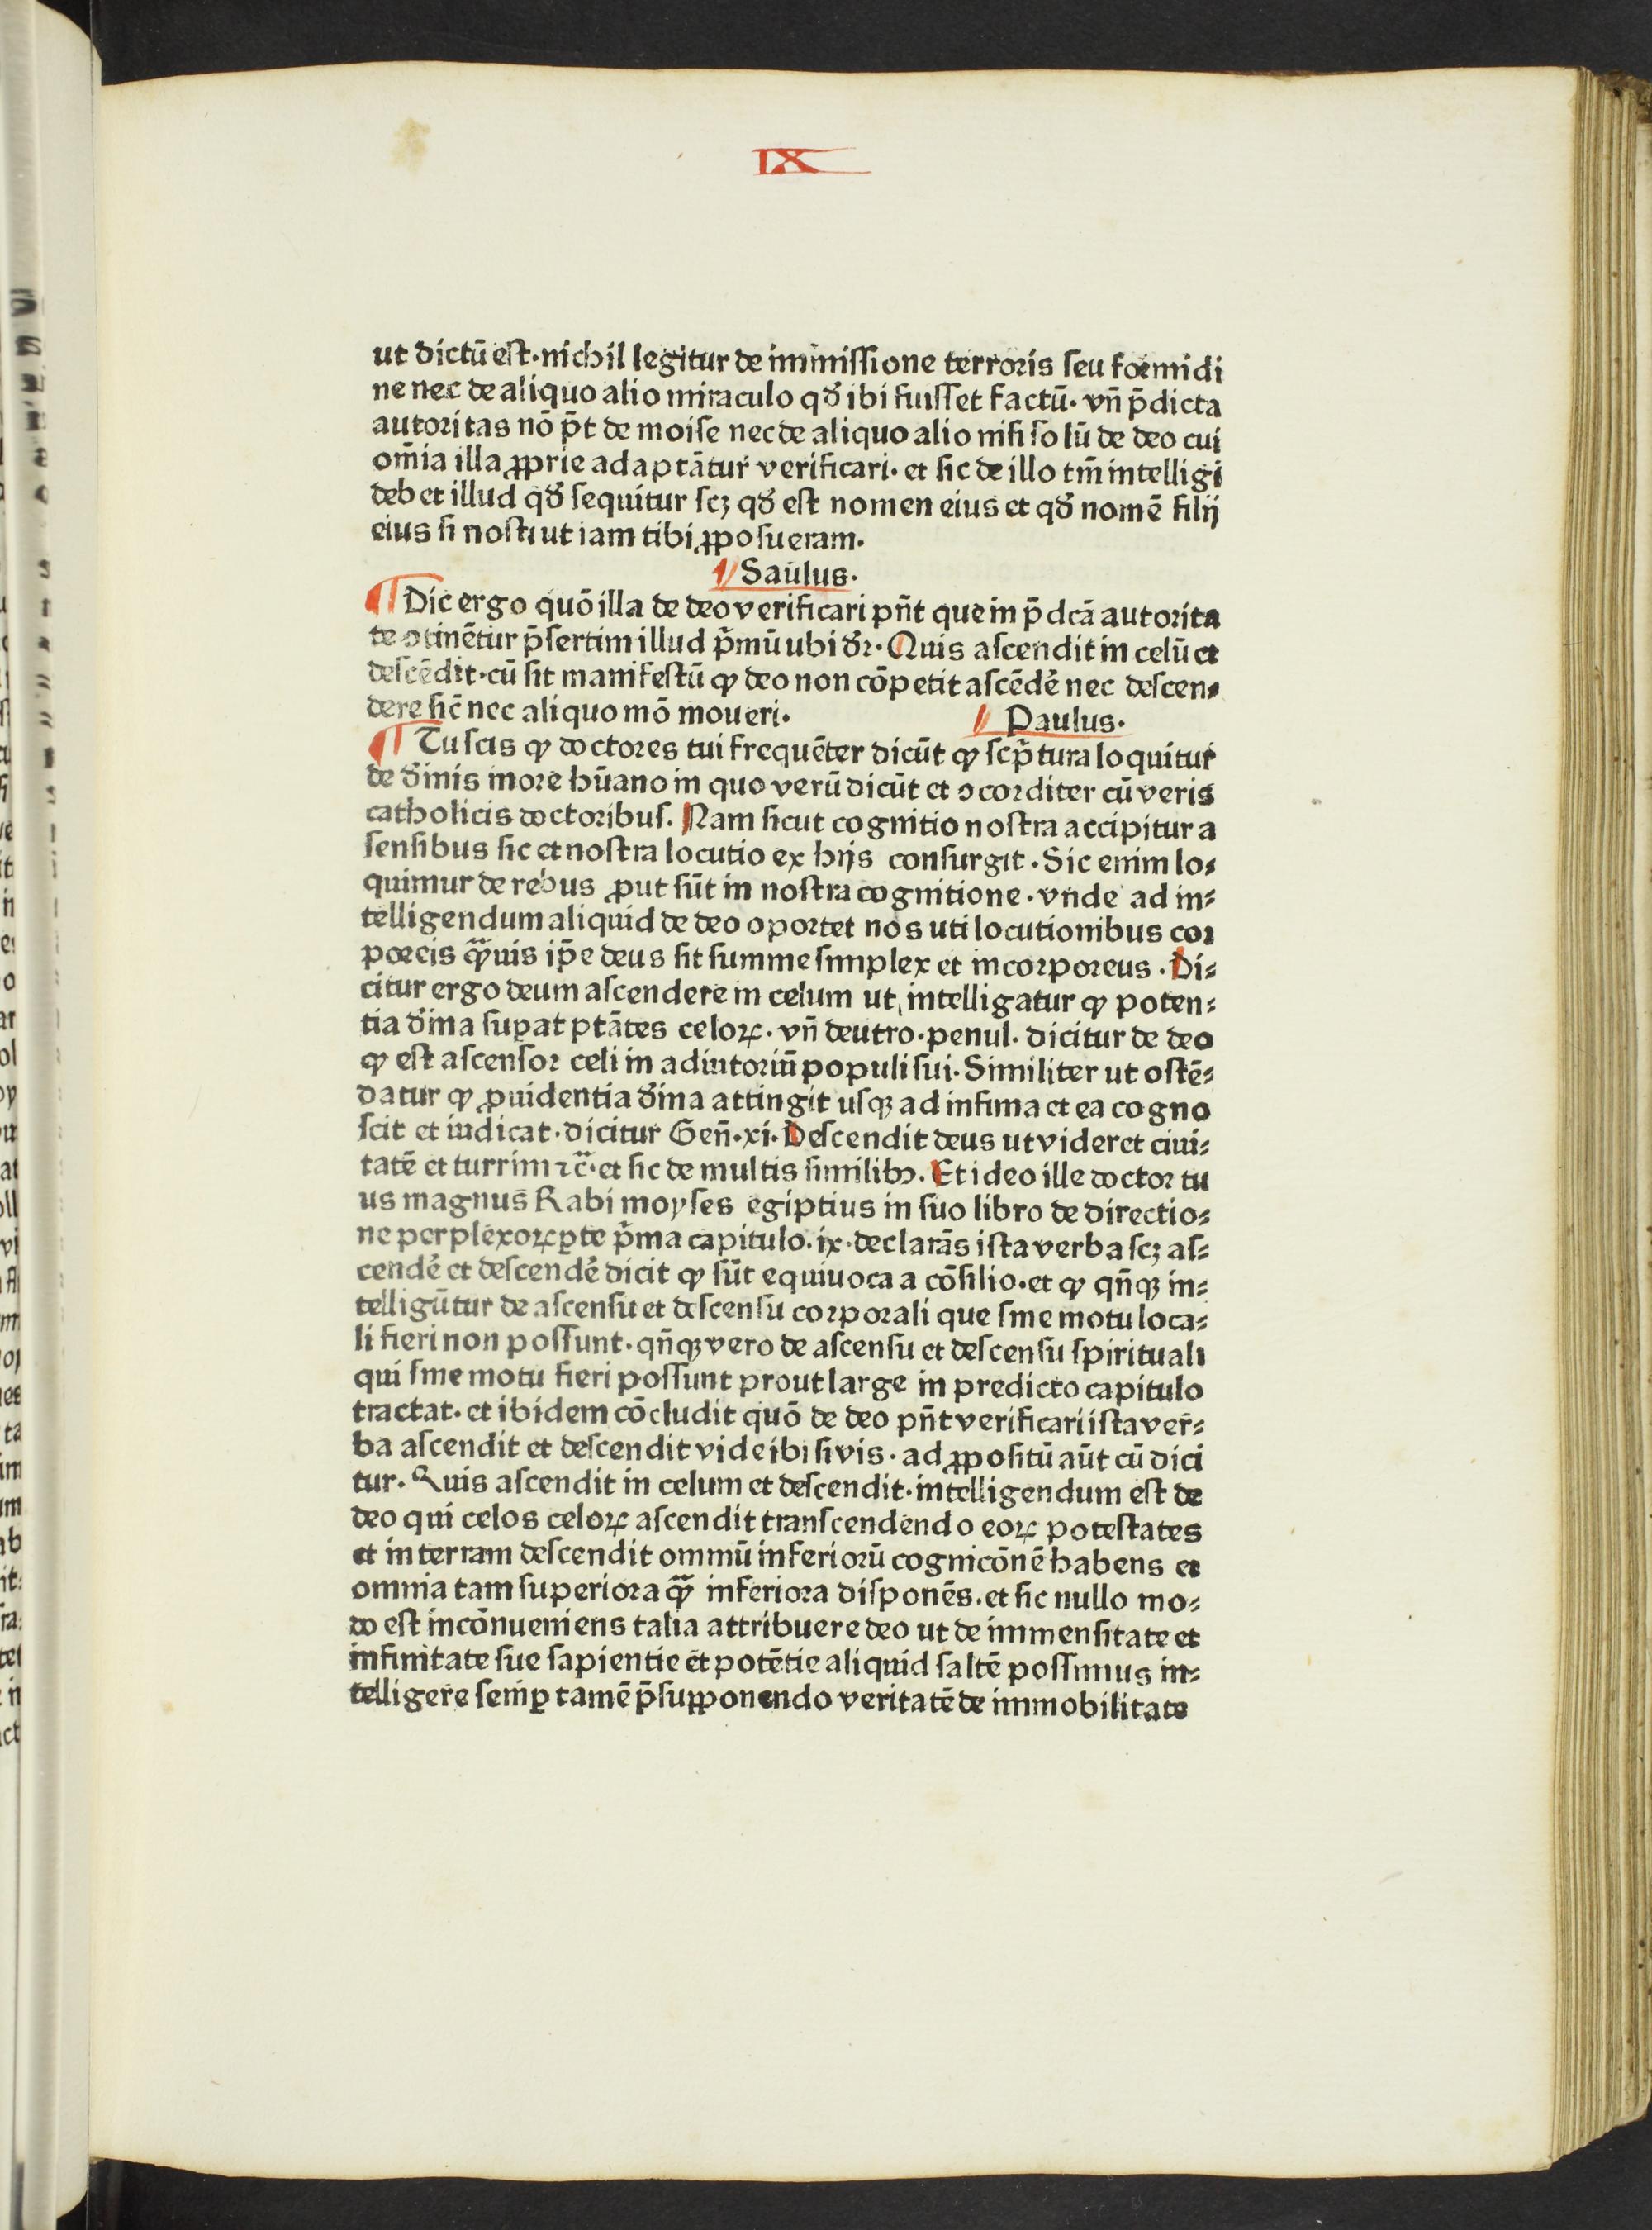 IX
ut dictū eſt·nichil legitur de immiſſione terroris ſeu formidi
ne nec de aliquo alio miraculo qđ ibi fuiſſet factū· vñ p̄dicta
autoritas nō p̄t de moiſe nec de aliquo alio niſi ſolū de deo cui
om̄ia illa ꝓprie adaptātur verificari· et ſic de illo tm̄ intelligi
debet illud qđ ſequitur ſcꝫ qđ eſt nomen eius et qđ nomē filij
eius ſi noſti ut iam tibi ꝓpoſueram.
Saulus·
¶ Dic ergo quō illa de deo verificari pn̄t que in p̄dcā autorita
te ↄtinētur p̄ſertim illud p̄mū ubi dr̄· Quis aſcendit in celū et
deſcēdit·cū ſit manifeſtū ꝙ deo non cōpetit aſcēdē nec deſcen⸗
dere ſic̄ nec aliquo mō moueri· Paulus·
¶ Tu ſcis ꝙ doctores tui frequēter dicūt ꝙ ſcp̄tura loquitur
de diīnis more hūano in quo verū dicūt et ↄcorditer cū veris
catholicis doctoribuſ. Nam ſicut cognitio noſtra accipitur a
ſenſibus ſic et noſtra locutio ex hijs conſurgit·Sic enim lo⸗
quimur de rebus ꝓut ſūt in noſtra cognitione·vnde ad in⸗
telligendum aliquid de deo oportet nos uti locutionibus cor
poreis qͣ̄uis ip̄e deus ſit ſumme ſimplex et incorporeus·Di⸗
citur ergo deum aſcendere in celum ut intelligatur ꝙ poten⸗
tia diīna ſuꝑat ptātes celoꝝ·vñ deutro·penul·dicitur de deo
ꝙ eſt aſcenſor celi in adiutoriū populi ſui·Similiter ut oſtē⸗
datur ꝙ ꝓuidentia diīna attingit uſqꝫ ad infima et ea cogno
ſcit et iudicat·dicitur Geñ·xi·Deſcendit deus ut videret ciui⸗
tatē et turrim ⁊c̄·et ſic de multis ſimilibꝰ. Et ideo ille doctor tu
us magnus Rabi moyſes egiptius in ſuo libro de directio⸗
ne perplexoꝝ ꝑte p̄ma capitulo·ix·declarās iſta verba ſcꝫ aſ⸗
cendē et deſcendē dicit ꝙ ſūt equiuoca a cōſilio·et ꝙ qñqꝫ in⸗
telligūtur de aſcenſu et deſcenſu corporali que ſine motu loca⸗
li fieri non poſſunt·qñqꝫ vero de aſcenſu et deſcenſu ſpirituali
qui ſine motu fieri poſſunt prout large in predicto capitulo
tractat·et ibidem cōcludit quō de deo pn̄t verificari iſta ver⸗
ba aſcendit et deſcendit vide ibi ſi vis·ad ꝓpoſitū aūt cū dici
tur·Quis aſcendit in celum et deſcendit·intelligendum eſt de
deo qui celos celoꝝ aſcendit tranſcendendo eoꝝ poteſtates
et in terram deſcendit omniū inferiorū cognicōnē habens et
omnia tam ſuperiora qͣ̄ inferiora diſponēs·et ſic nullo mo⸗
do eſt incōnueniens talia attribuere deo ut de immenſitate et
infinitate ſue ſapientie et potētie aliquid ſaltē poſſimus in⸗
telligere ſemꝑ tamē p̄ſuꝓponendo veritatē de immobilitate